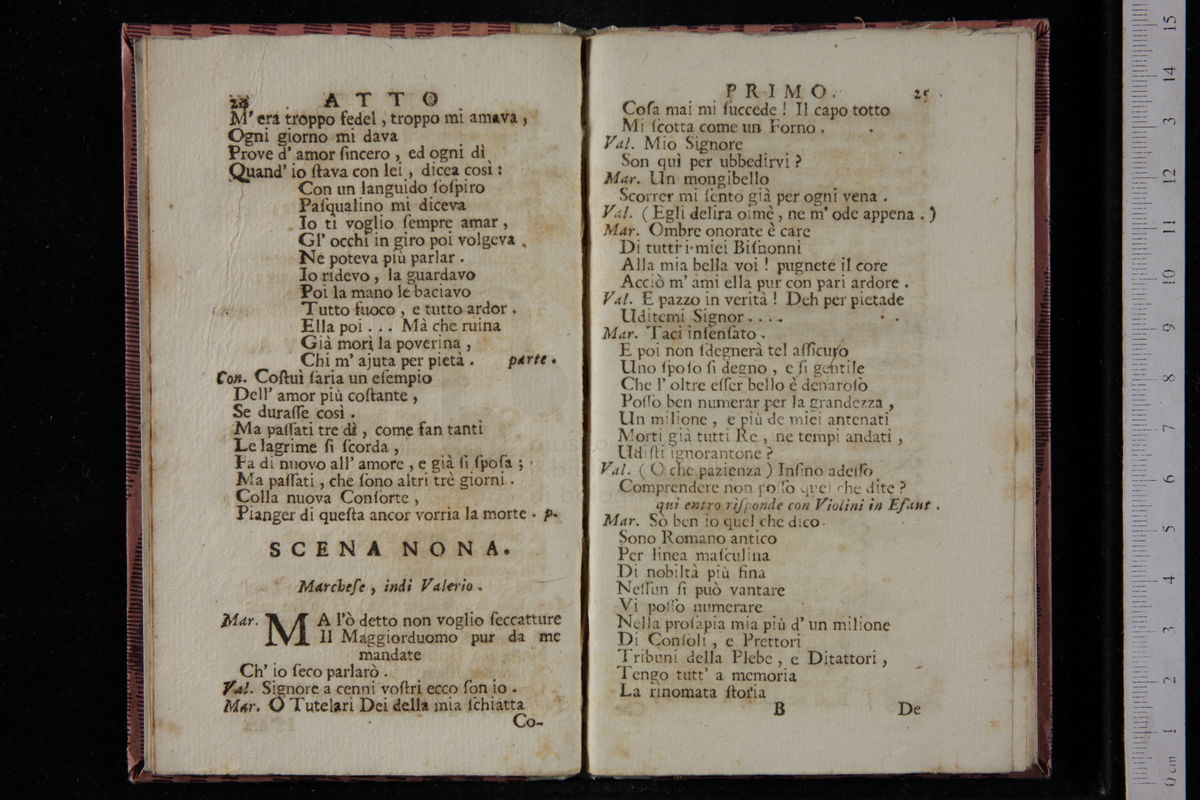 24 ATTO
M' era troppo fedel, troppo mi amava,
Ogni giorno mi dava
Prove d' amor ſincero, ed ogni dì
Quand' io ſtava con lei, dicea così:
Con un languido ſoſpiro
Paſqualino mi diceva
Io ti voglio ſempre amar,
Gl' occhi in giro poi volgeva,
Ne poteva più parlar.
Io ridevo, la guardavo
Poi la mano le baciavo
Tutto fuoco, e tutto ardor.
Ella poi... Mà che ruina
Già morì la poverina,
Chi m' ajuta per pietà. parte.
Con. Coſtuì ſaria un eſempio
Dell' amor più coſtante,
Se duraſſe così.
Ma paſſati tre dì, come fan tanti
Le lagrime ſi ſcorda,
Fa di nuovo all' amore, e già ſi ſpoſa;
Ma paſſati, che ſono altri trè giorni.
Colla nuova Conſorte,
Pianger di queſta ancor vorria la morte. p.
SCENA NONA.
Marcheſe, indi Valerio.
Mar. MA l'ò detto non voglio ſeccatture
Il Maggiorduomo pur da me
mandate
Ch' io ſeco parlarò.
Val. Signore a cenni voſtri ecco ſon io.
Mar. O Tutelari Dei della mia ſchiatta
Co-
PRIMO. 25
Coſa mai mi ſuccede! Il capo totto
Mi ſcotta come un Forno.
Val. Mio Signore
Son quì per ubbedirvi?
Mar. Un mongibello
Scorrer mi ſento già per ogni vena.
Val. (Egli delira oimè, ne m' ode appena.)
Mar. Ombre onorate è care
Di tutti i miei Biſnonni
Alla mia bella voi! pugnete il core
Acciò m' ami ella pur con pari ardore.
Val. E pazzo in verità! Deh per pietade
Uditemi Signor....
Mar. Taci inſenſato.
E poi non ſdegnerà tel aſſicuro
Uno ſpoſo ſi degno, e ſi gentile
Che l' oltre eſſer bello è denaroſo
Poſſo ben numerar per la grandezza,
Un milione, e più de miei antenati
Morti già tutti Re, ne tempi andati,
Udiſti ignorantone?
Val. (O che pazienza) Inſino adeſſo
Comprendere non poſſo quel che dite?
qui entro riſponde con Violini in Eſaut.
Mar. Sò ben io quel che dico
Sono Romano antico
Per linea maſculina
Di nobiltà più fina
Neſſun ſi può vantare
Vi poſſo numerare
Nella proſapia mia più d' un milione
Di Conſoli, e Prettori
Tribuni della Plebe, e Ditattori,
Tengo tutt' a memoria
La rinomata ſtoria
B De